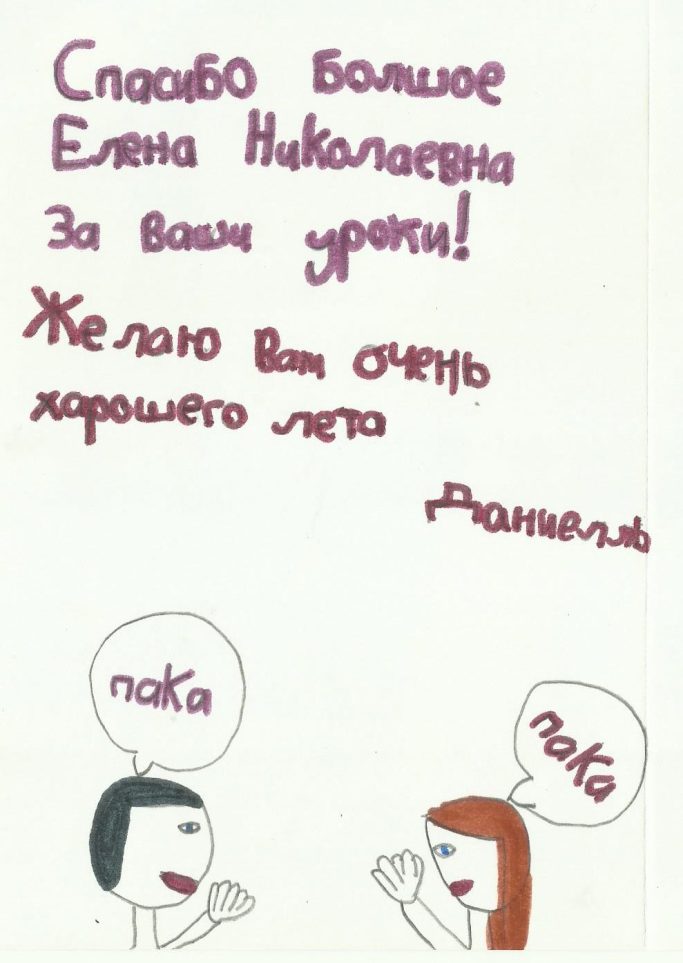 Спасибо Болшое
Елена Николаевна
За Ваши уроки!
Желаю Вам очень
харошего лета
Даниелль
пака
пака